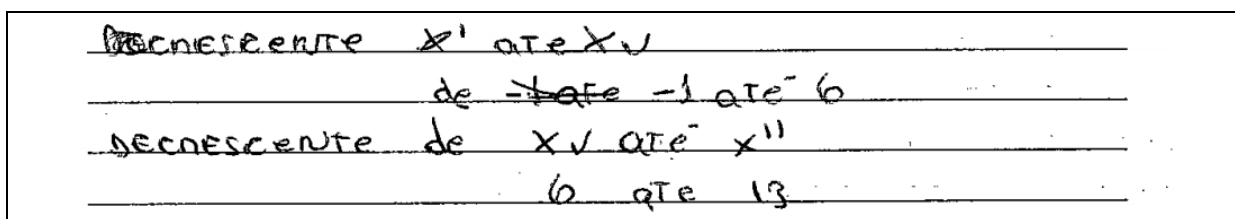 Decnescente x' ate Xv
de -1 ate -1 ate 6
Decnescente de Xv ate x''
6 ate 13